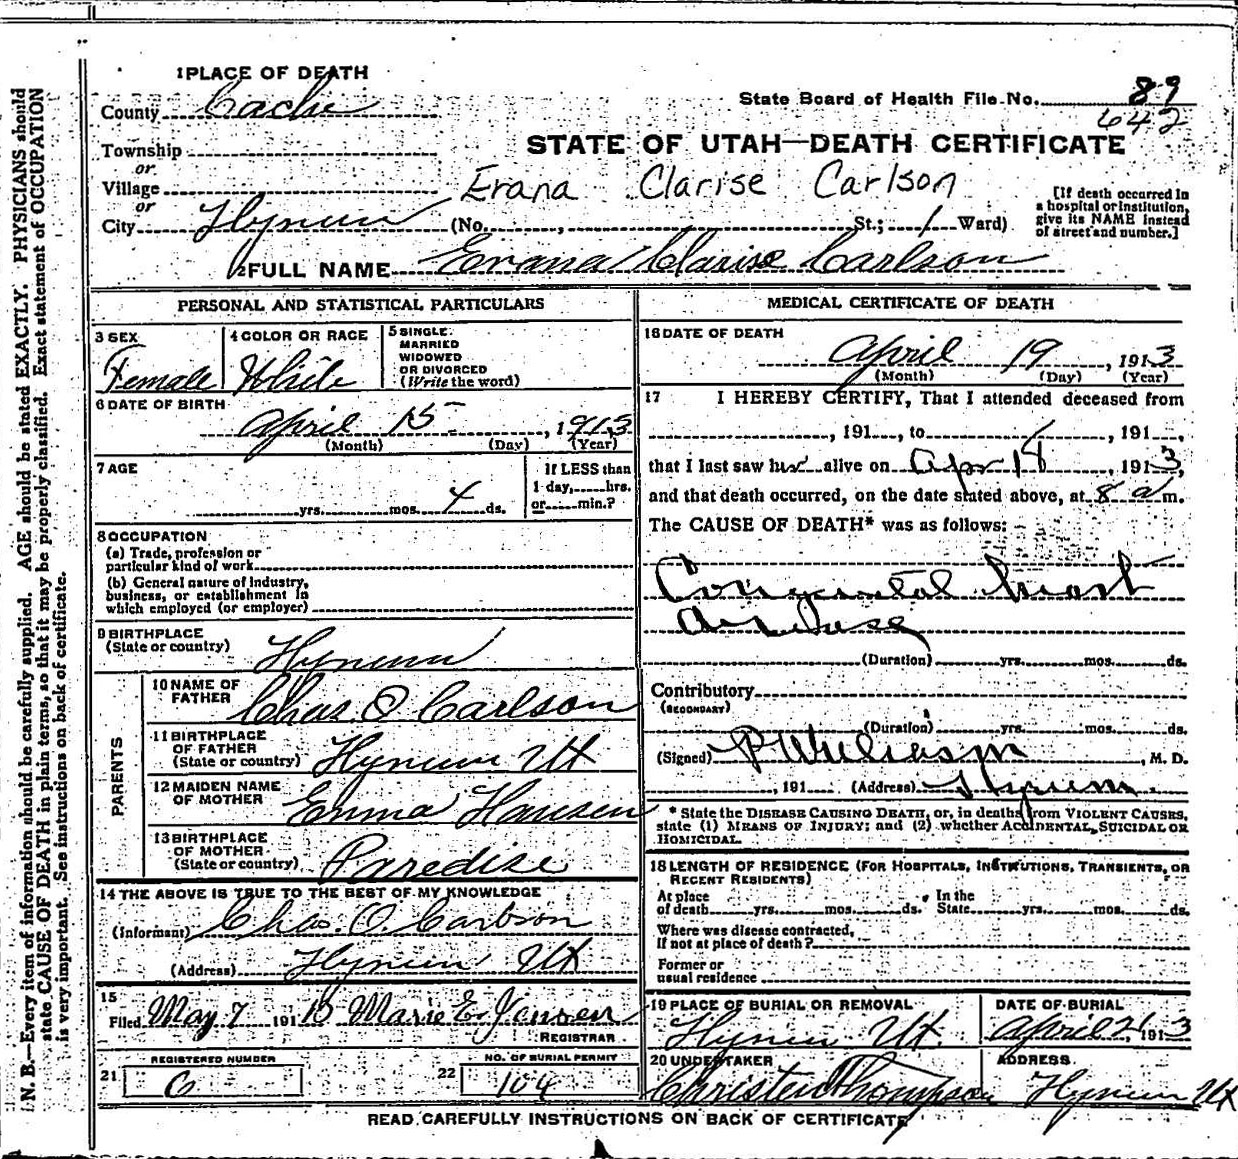 1 PLACE OF DEATH
County Cache
State Board of Health File No. 89
642
Township
or
Village
or
City Hyrum
STATE OF UTAH—DEATH CERTIFICATE
Erana Clarise Carlson
(No. , St.; 1 Ward)
[If death occurred in
a hospital or institution,
give its NAME instead
of street and number.]
2 FULL NAME Erana Clarise Carlson
PERSONAL AND STATISTICAL PARTICULARS
3 SEX
Female
4 COLOR OR RACE
White
5 SINGLE.
MARRIED
WIDOWED
OR DIVORCED
(Write the word)
6 DATE OF BIRTH
April 15 , 1913
(Month) (Day) (Year)
7 AGE
yrs. mos. 4 ds.
If LESS than
1 day, hrs.
or min.?
8 OCCUPATION
(a) Trade, profession or
particular kind of work
(b) General nature of Industry,
business, or establishment in
which employed (or employer)
9 BIRTHPLACE
(State or country) Hyrum
PARENTS
10 NAME OF
FATHER Chas. O Carlson
11 BIRTHPLACE
OF FATHER
(State or country) Hyrum Ut
12 MAIDEN NAME
OF MOTHER Emma Hansen
13 BIRTHPLACE
OF MOTHER
(State or country) Paredise
14 THE ABOVE IS TRUE TO THE BEST OF MY KNOWLEDGE
(Informant) Chas. O. Carlson
(Address) Hyrum Ut
15
Filed May 7 191 13 Marie E. Jensen
REGISTRAR
REGISTERED NUMBER
21 6
NO. OF BURIAL PERMIT
22 104
MEDICAL CERTIFICATE OF DEATH
16 DATE OF DEATH
April 19 , 1913
(Month) (Day) (Year)
17 I HEREBY CERTIFY, That I attended deceased from
, 191 , to , 191 ,
that I last saw her alive on Apr 18 , 1913,
and that death occurred, on the date stated above, at 8 a m.
The CAUSE OF DEATH* was as follows:
Congenital heart
disease
(Duration) yrs. mos. ds.
Contributory
(SECONDARY)
(Duration) yrs. mos. ds.
(Signed) , M. D.
, 191 (Address) Hyrum.
* State the DISEASE CAUSING DEATH, or, in deaths from VIOLENT CAUSES,
state (1) MEANS OF INJURY; and (2) whether ACCIDENTAL, SUICIDAL OR
HOMICIDAL.
18 LENGTH OF RESIDENCE (FOR HOSPITALS, INSTITUTIONS, TRANSIENTS, OR
RECENT RESIDENTS)
At place
of death yrs. mos. ds. In the
State yrs. mos. ds.
Where was disease contracted,
If not at place of death?
Former or
usual residence
19 PLACE OF BURIAL OR REMOVAL
Hyrum Ut.
DATE OF BURIAL
April 21 1913
20 UNDERTAKER
Christen Thompson
ADDRESS
Hyrum Ut
READ CAREFULLY INSTRUCTIONS ON BACK OF CERTIFICATE
N. B.—Every item of information should be carefully supplied. AGE should be stated EXACTLY. PHYSICIANS should
state CAUSE OF DEATH in plain terms, so that it may be properly classified. Exact statement of OCCUPATION
is very important. See instructions on back of certificate.